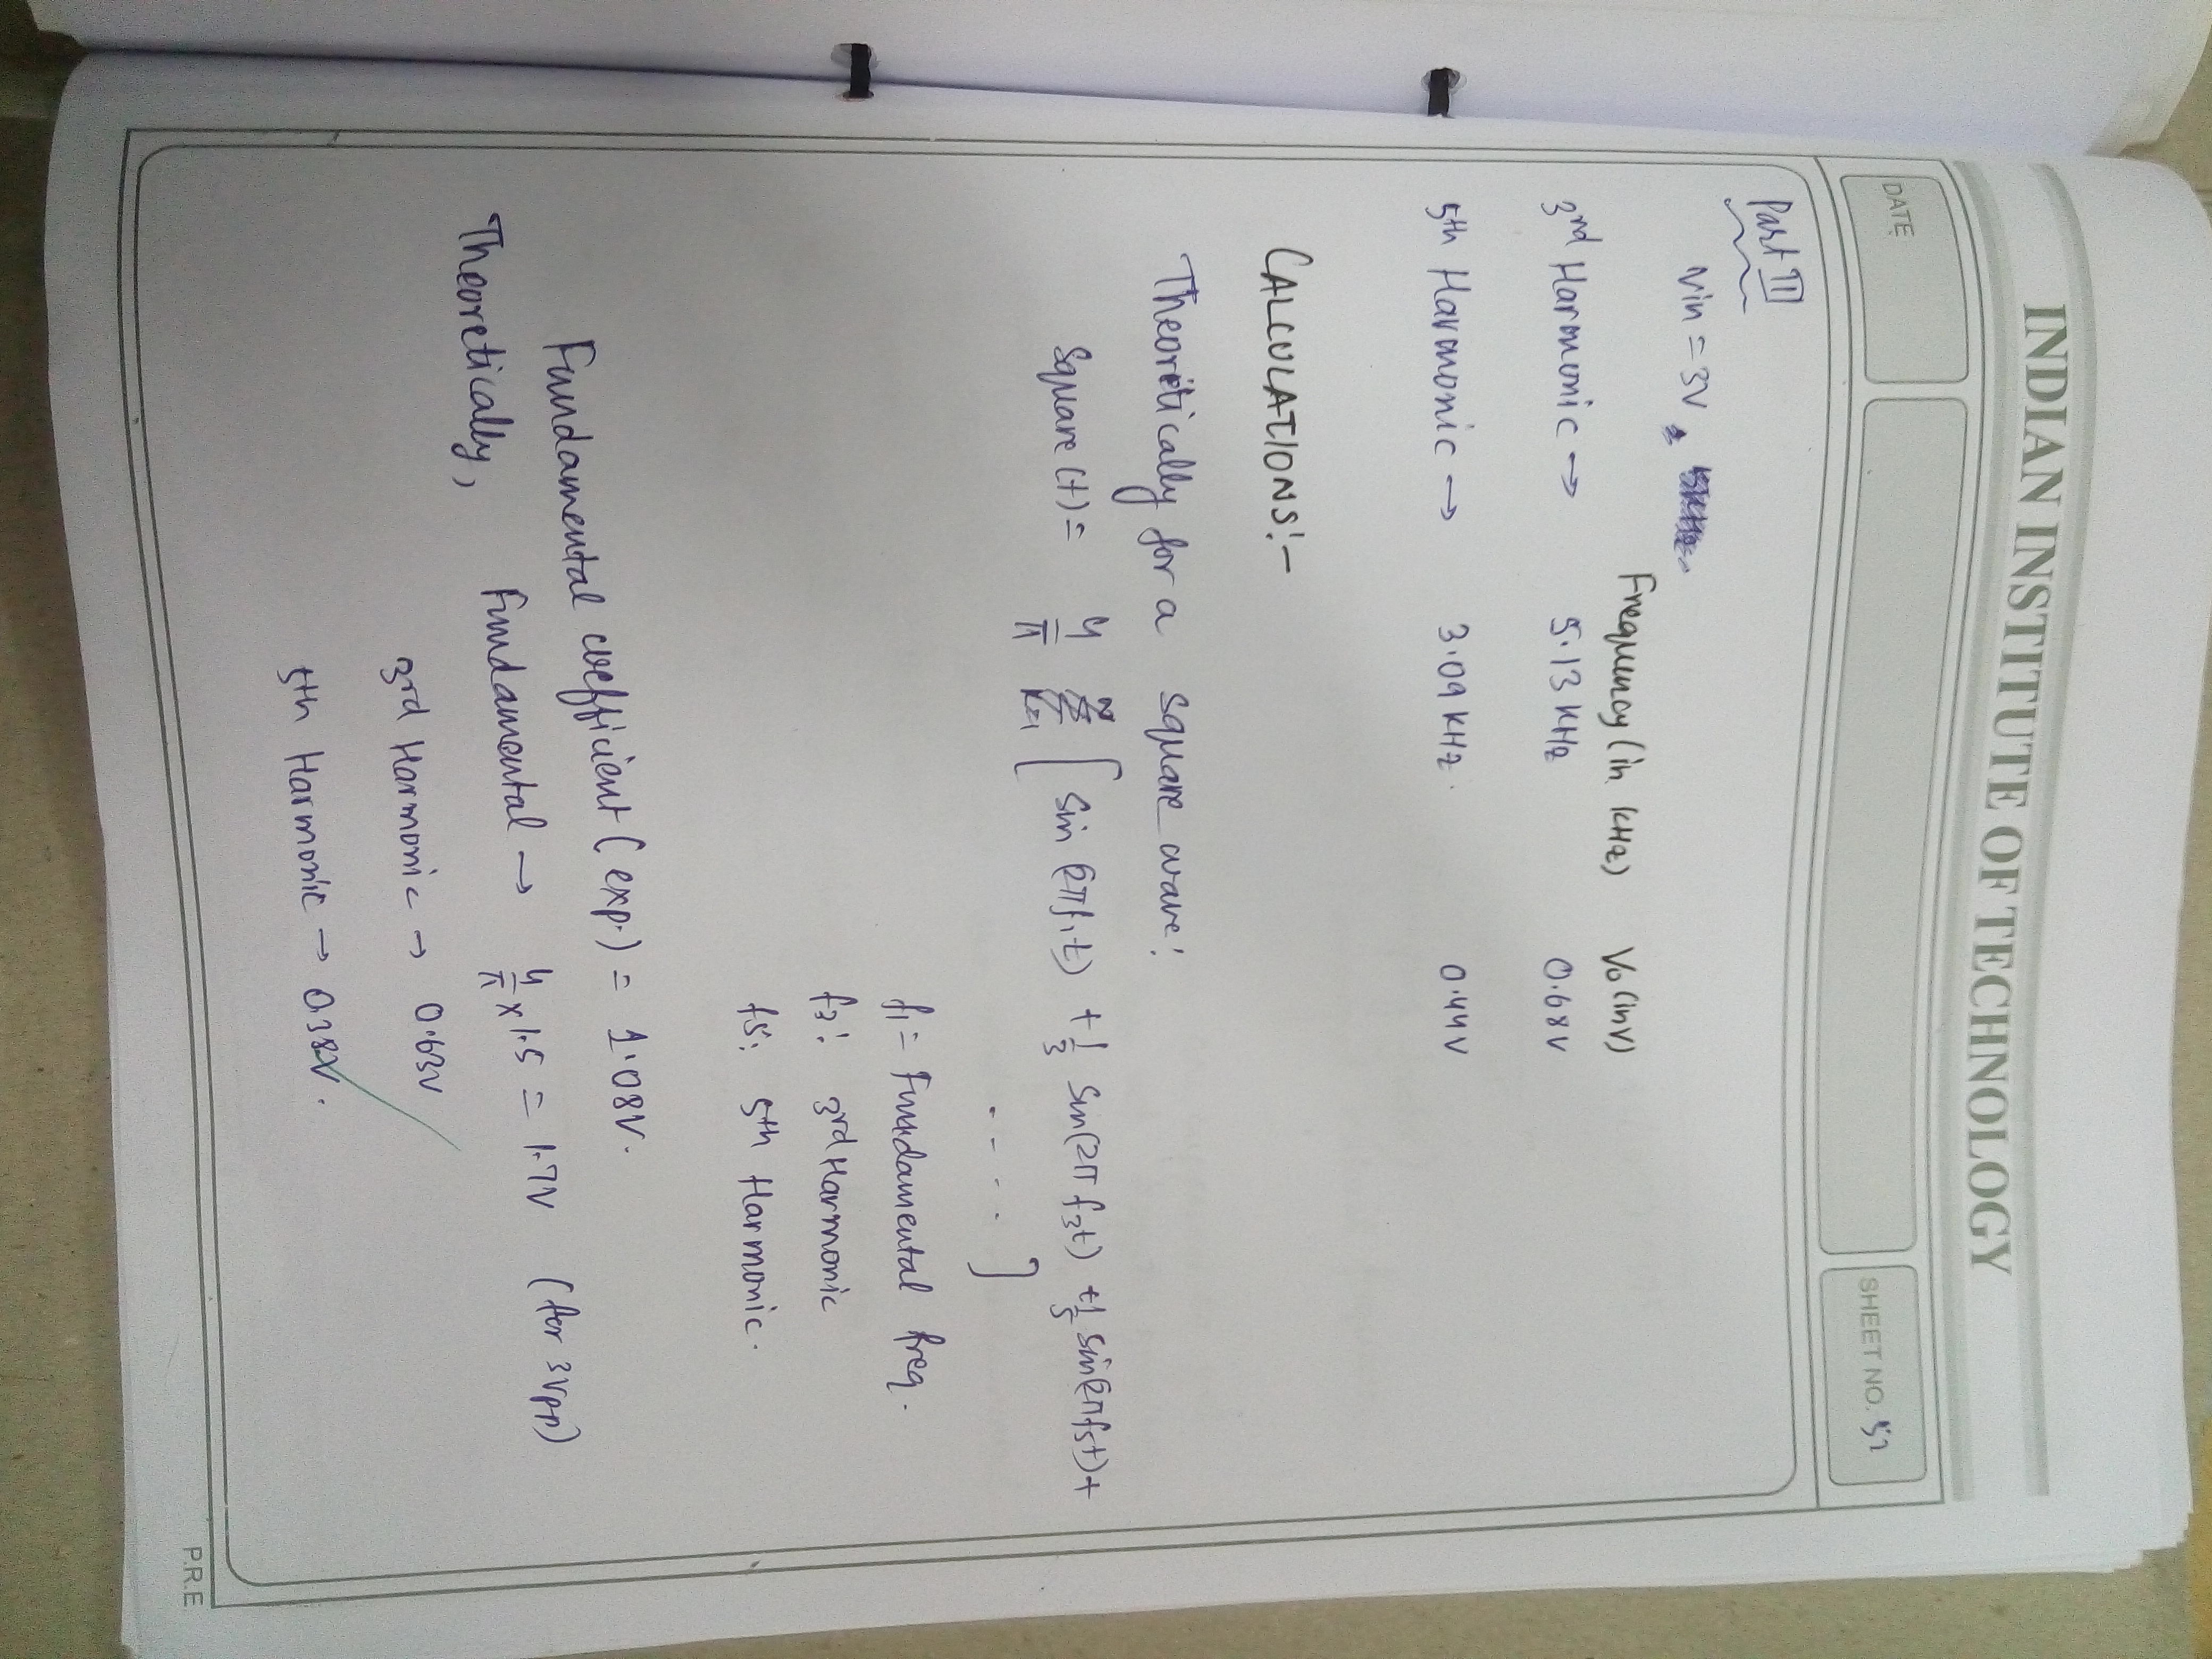 INDIAN INSTITUTE OF TECHNOLOGY
DATE
SHEET NO. 52
Part II
Vin = 3V,
Frequency (in KHz) Vo (in V)
3rd Harmonic → 5.13 KHz 0.68V
5th Harmonic → 3.09 KHz. 0.44V
CALCULATIONS:-
Theoritically for a square wave:
Square (t) = 4/π [ sin (2πf1t) + 1/3 sin(2π f3t) + 1/5 sin(2πf5t)+
.... ]
f1 = Fundamental freq.
f3: 3rd Harmonic
f5: 5th Harmonic.
Fundamental coefficient (exp.) = 1.08V.
Theoretically, Fundamental → 4/π x 1.5 = 1.7V (for 3Vpp)
3rd Harmonic → 0.63V
5th Harmonic → 0.38V.
P.R.E